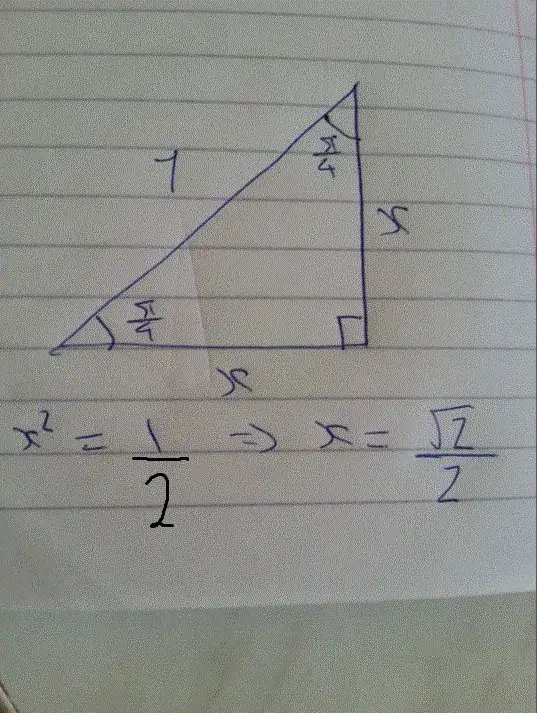 1
π/4
x
π/4
x
x² = 1/2 ⇒ x = √2/2